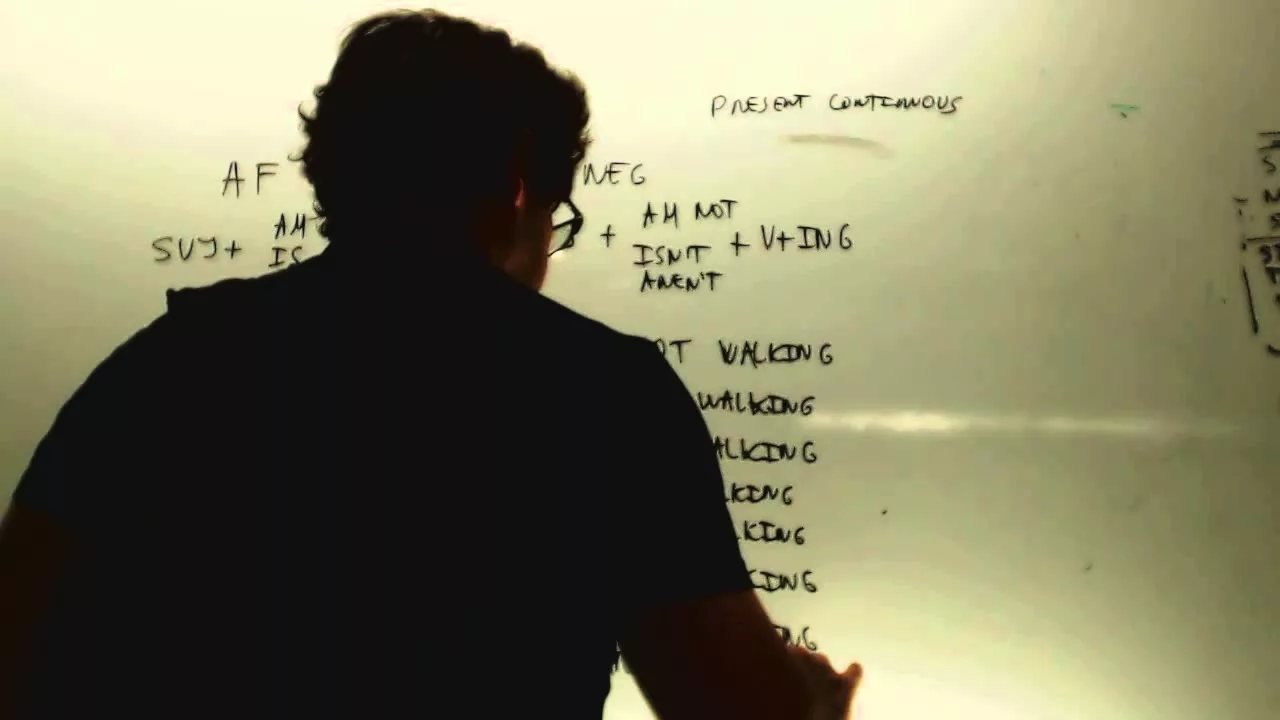 PRESENT CONTINUOUS
AF NEG
SUJ + AM IS + AM NOT ISN'T AREN'T + V+ING
OT WALKING
WALKING
ALKING
KING
KING
KING
NG